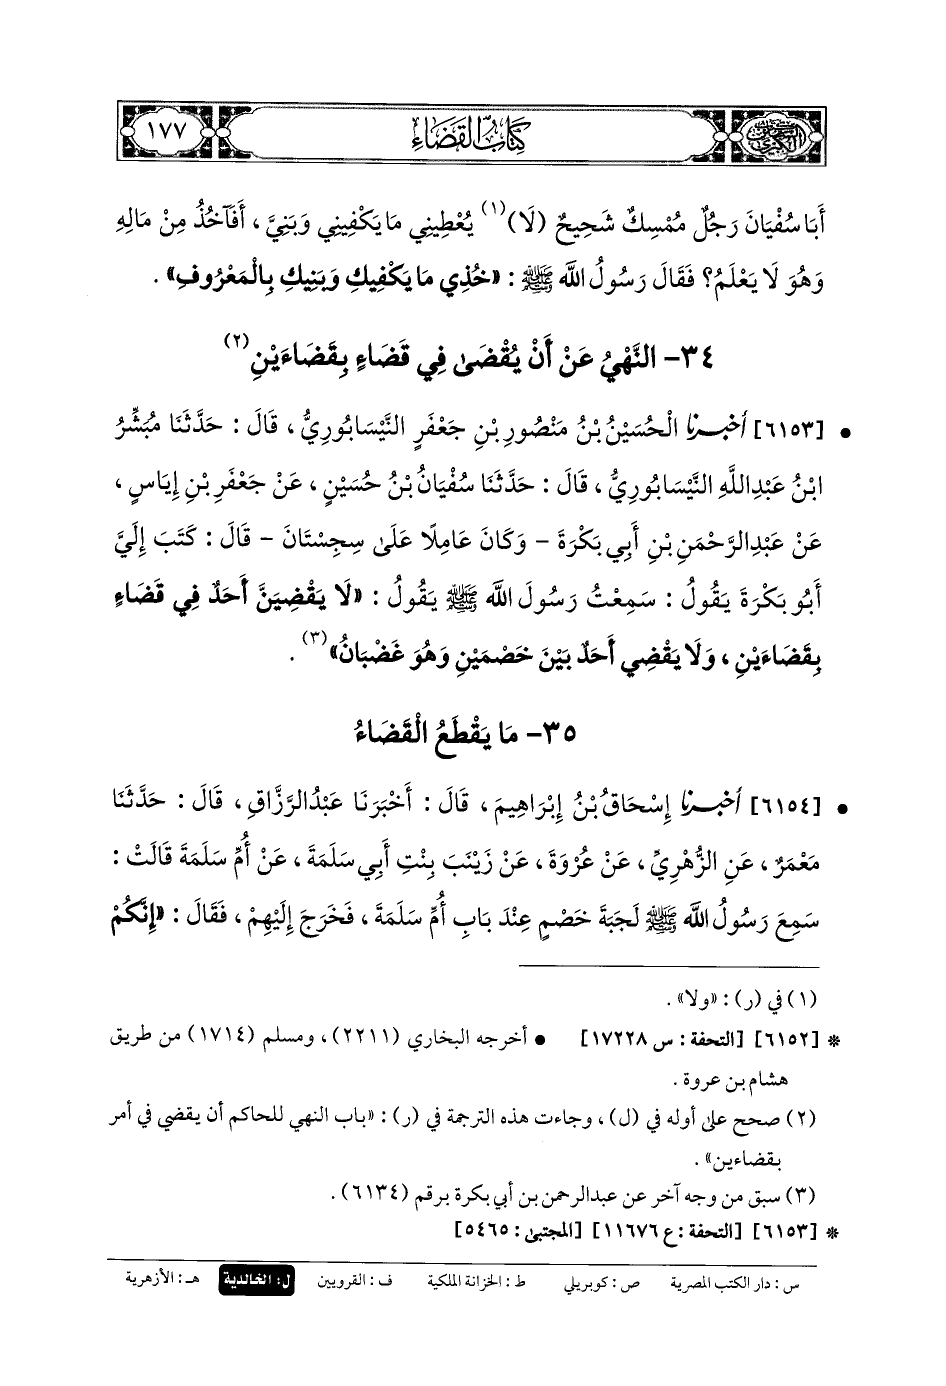 كتاب القضاء
١٧٧
أَبَا سُفْيَانَ رَجُلٌ مُمْسِكٌ شَحِيحٌ (لَا)(١) يُعْطِينِي مَا يَكْفِينِي وَبَنِيَّ، أَفَآخُذُ مِنْ مَالِهِ
وَهُوَ لَا يَعْلَمُ؟ فَقَالَ رَسُولُ اللَّه ﷺ: «خُذِي مَا يَكْفِيكِ وَبَنِيكِ بِالْمَعْرُوفِ».
٣٤- النَّهْيُ عَنْ أَنْ يُقْضَىٰ فِي قَضَاءٍ بِقَضَاءَيْنِ(٢)
• [٦١٥٣] أخبرنا الْحُسَيْنُ بْنُ مَنْصُورِ بْنِ جَعْفَرٍ النَّيْسَابُورِيُّ، قَالَ: حَدَّثَنَا مُبَشِّرُ
ابْنُ عَبْدِاللَّهِ النَّيْسَابُورِيُّ، قَالَ: حَدَّثَنَا سُفْيَانُ بْنُ حُسَيْنٍ، عَنْ جَعْفَرِ بْنِ إِيَاسٍ،
عَنْ عَبْدِالرَّحْمَنِ بْنِ أَبِي بَكْرَةَ - وَكَانَ عَامِلًا عَلَىٰ سِجِسْتَانَ - قَالَ: كَتَبَ إِلَيَّ
أَبُو بَكْرَةَ يَقُولُ: سَمِعْتُ رَسُولَ اللَّه ﷺ يَقُولُ: «لَا يَقْضِيَنَّ أَحَدٌ فِي قَضَاءٍ
بِقَضَاءَيْنِ، وَلَا يَقْضِي أَحَدٌ بَيْنَ خَصْمَيْنِ وَهُوَ غَضْبَانُ»(٣).
٣٥- مَا يَقْطَعُ الْقَضَاءُ
• [٦١٥٤] أخبرنا إِسْحَاقُ بْنُ إِبْرَاهِيمَ، قَالَ: أَخْبَرَنَا عَبْدُالرَّزَّاقِ، قَالَ: حَدَّثَنَا
مَعْمَرٌ، عَنِ الزُّهْرِيِّ، عَنْ عُرْوَةَ، عَنْ زَيْنَبَ بِنْتِ أَبِي سَلَمَةَ، عَنْ أُمِّ سَلَمَةَ قَالَتْ:
سَمِعَ رَسُولُ اللَّه ﷺ لَجَبَةَ خَصْمٍ عِنْدَ بَابِ أُمِّ سَلَمَةَ، فَخَرَجَ إِلَيْهِمْ، فَقَالَ: «إِنَّكُمْ
(١) في (ر): «ولا».
* [٦١٥٢] [التحفة: س ١٧٢٢٨] • أخرجه البخاري (٢٢١١)، ومسلم (١٧١٤) من طريق
هشام بن عروة.
(٢) صحح على أوله في (ل)، وجاءت هذه الترجمة في (ر): «باب النهي للحاكم أن يقضي في أمر
بقضاءين».
(٣) سبق من وجه آخر عن عبدالرحمن بن أبي بكرة برقم (٦١٣٤).
* [٦١٥٣] [التحفة: ع ١١٦٧٦] [المجتبى: ٥٤٦٥]
س: دار الكتب المصرية ص: كوبريلي ط: الخزانة الملكية ف: القرويين ل: الخالدية هـ: الأزهرية